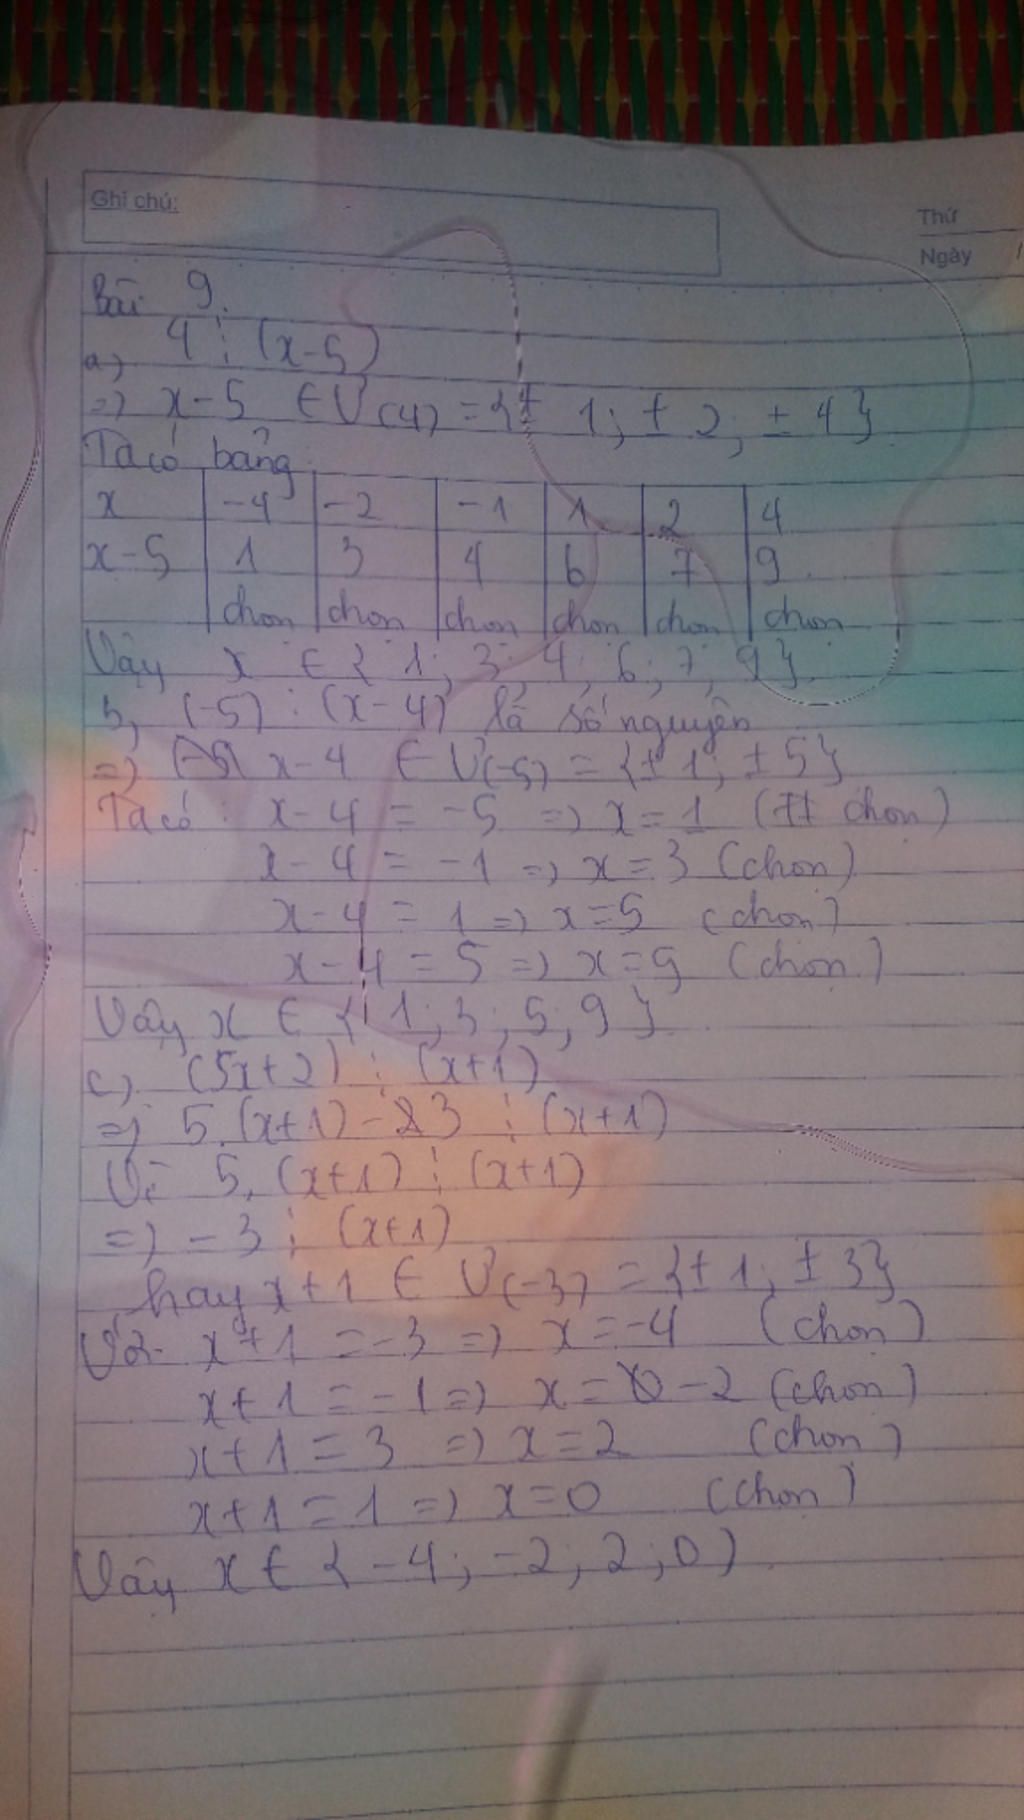 Ghi chú:
Thứ
Ngày
Bài 9.
a) 4 ⋮ (x-5)
=) x-5 ∈ Ư(4) = {± 1; ± 2; ± 4}
Ta có bảng
x | -4 | -2 | -1 | 1 | 2 | 4
x-5 | 1 | 3 | 4 | 6 | 7 | 9
chọn | chọn | chọn | chọn | chọn | chọn
Vậy x ∈ { 1; 3; 4; 6; 7; 9}
b, (-5) : (x-4) là số nguyên
=) x-4 ∈ Ư(-5) = {±1; ±5}
Ta có: x-4 = -5 =) x=1 (chọn)
x-4 = -1 =) x=3 (chọn)
x-4 = 1 =) x=5 (chọn)
x-4 = 5 =) x=9 (chọn)
Vậy x ∈ { 1; 3; 5; 9 }
c). (5x+2) ⋮ (x+1)
=) 5.(x+1) - 3 ⋮ (x+1)
Vì 5.(x+1) ⋮ (x+1)
=) -3 ⋮ (x+1)
hay x+1 ∈ Ư(-3) = {±1; ±3}
Với x+1 = -3 =) x=-4 (chọn)
x+1 = -1 =) x= -2 (chọn)
x+1 = 3 =) x=2 (chọn)
x+1 = 1 =) x=0 (chọn)
Vậy x ∈ { -4; -2; 2; 0 )